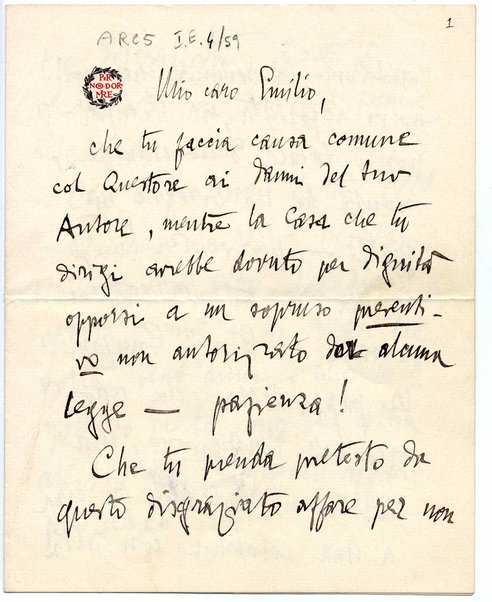 1
ARC5 I.E.4/59
PER
NON DOR
MIRE
Mio caro Emilio,
che tu faccia causa comune
col Questore ai danni del tuo
Autore, mentre la Casa che tu
dirigi avrebbe dovuto per dignità
opporsi a un sopruso preventi-
vo non autorizzato da alcuna
legge — pazienza!
Che tu prenda pretesto da
questo disgraziato affare per non